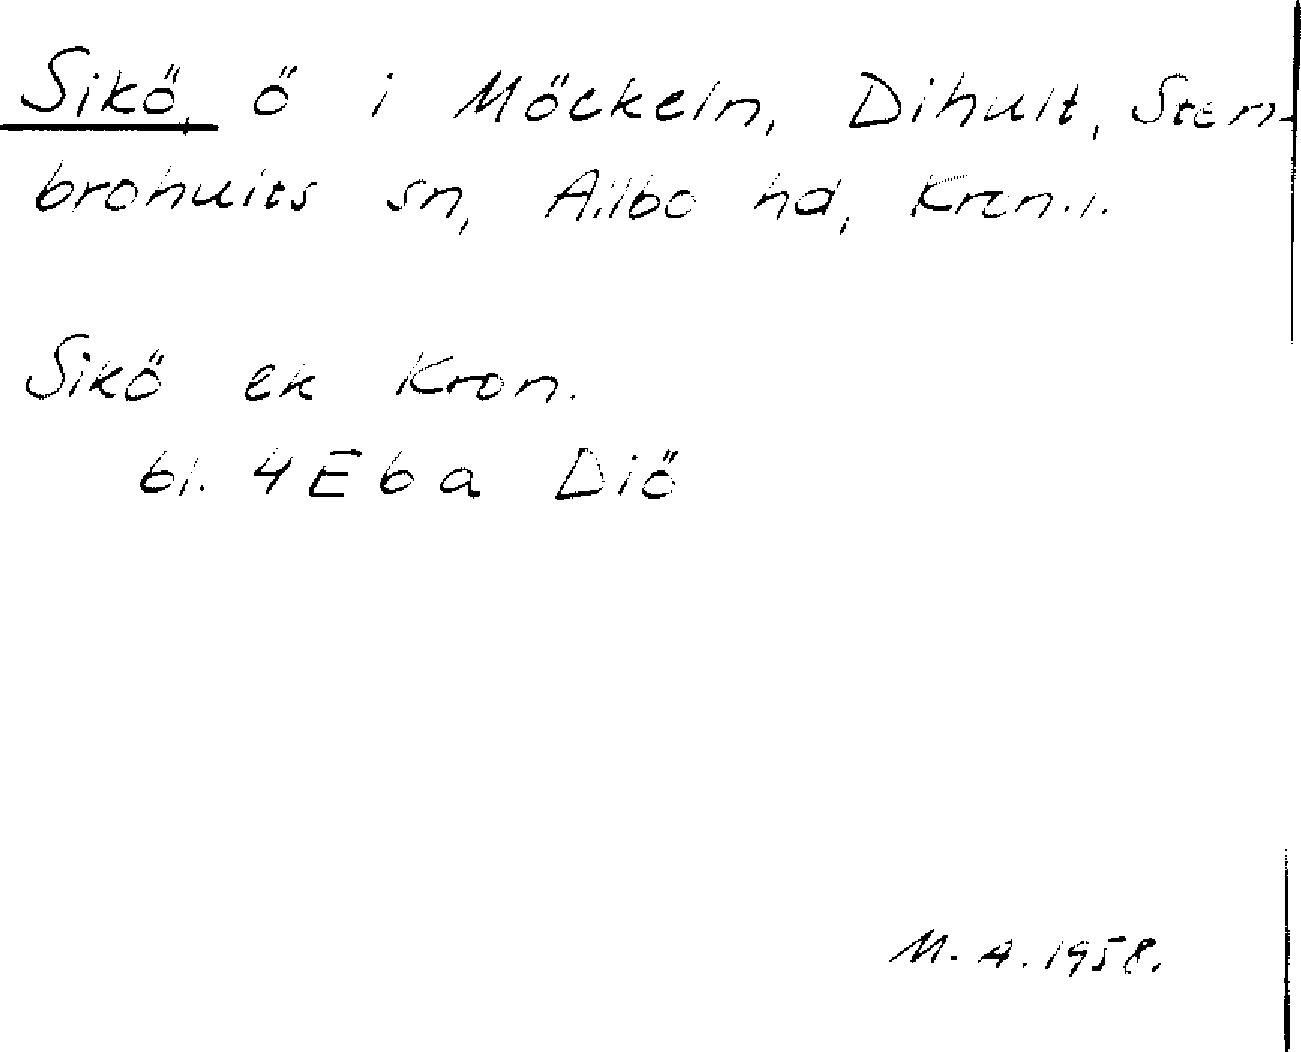 Sikö, ö i Möckeln, Dihult, Sten-
brohults sn, Allbo hd, Kron.l.
Sikö ek Kron.
bl. 4E6a Diö
M.A. 1958.